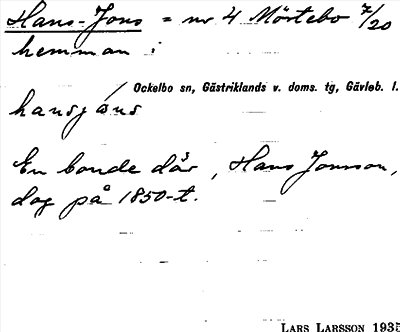 Hans-Jons = nr 4 Mörtebo 7/20
hemman :
Ockelbo sn, Gästriklands v. doms. tg, Gävleb. l.
hansjóns
En bonde där, Hans Jonsson,
dog på 1850-t.
LARS LARSSON 1935